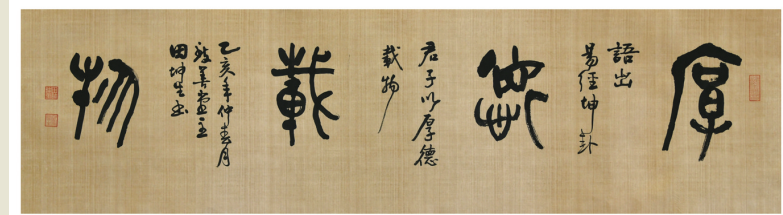 厚
語出
易経坤卦
德
君子以厚德
載物
載
乙亥年仲春月
善堂主
田坤生书
物